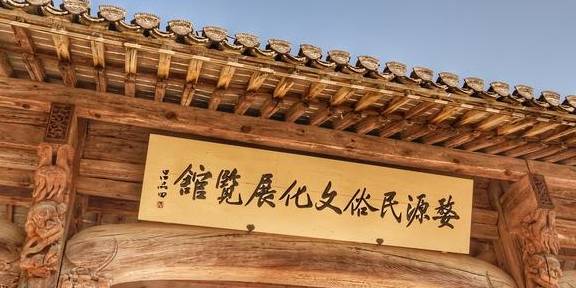 婺源民俗文化展覽館